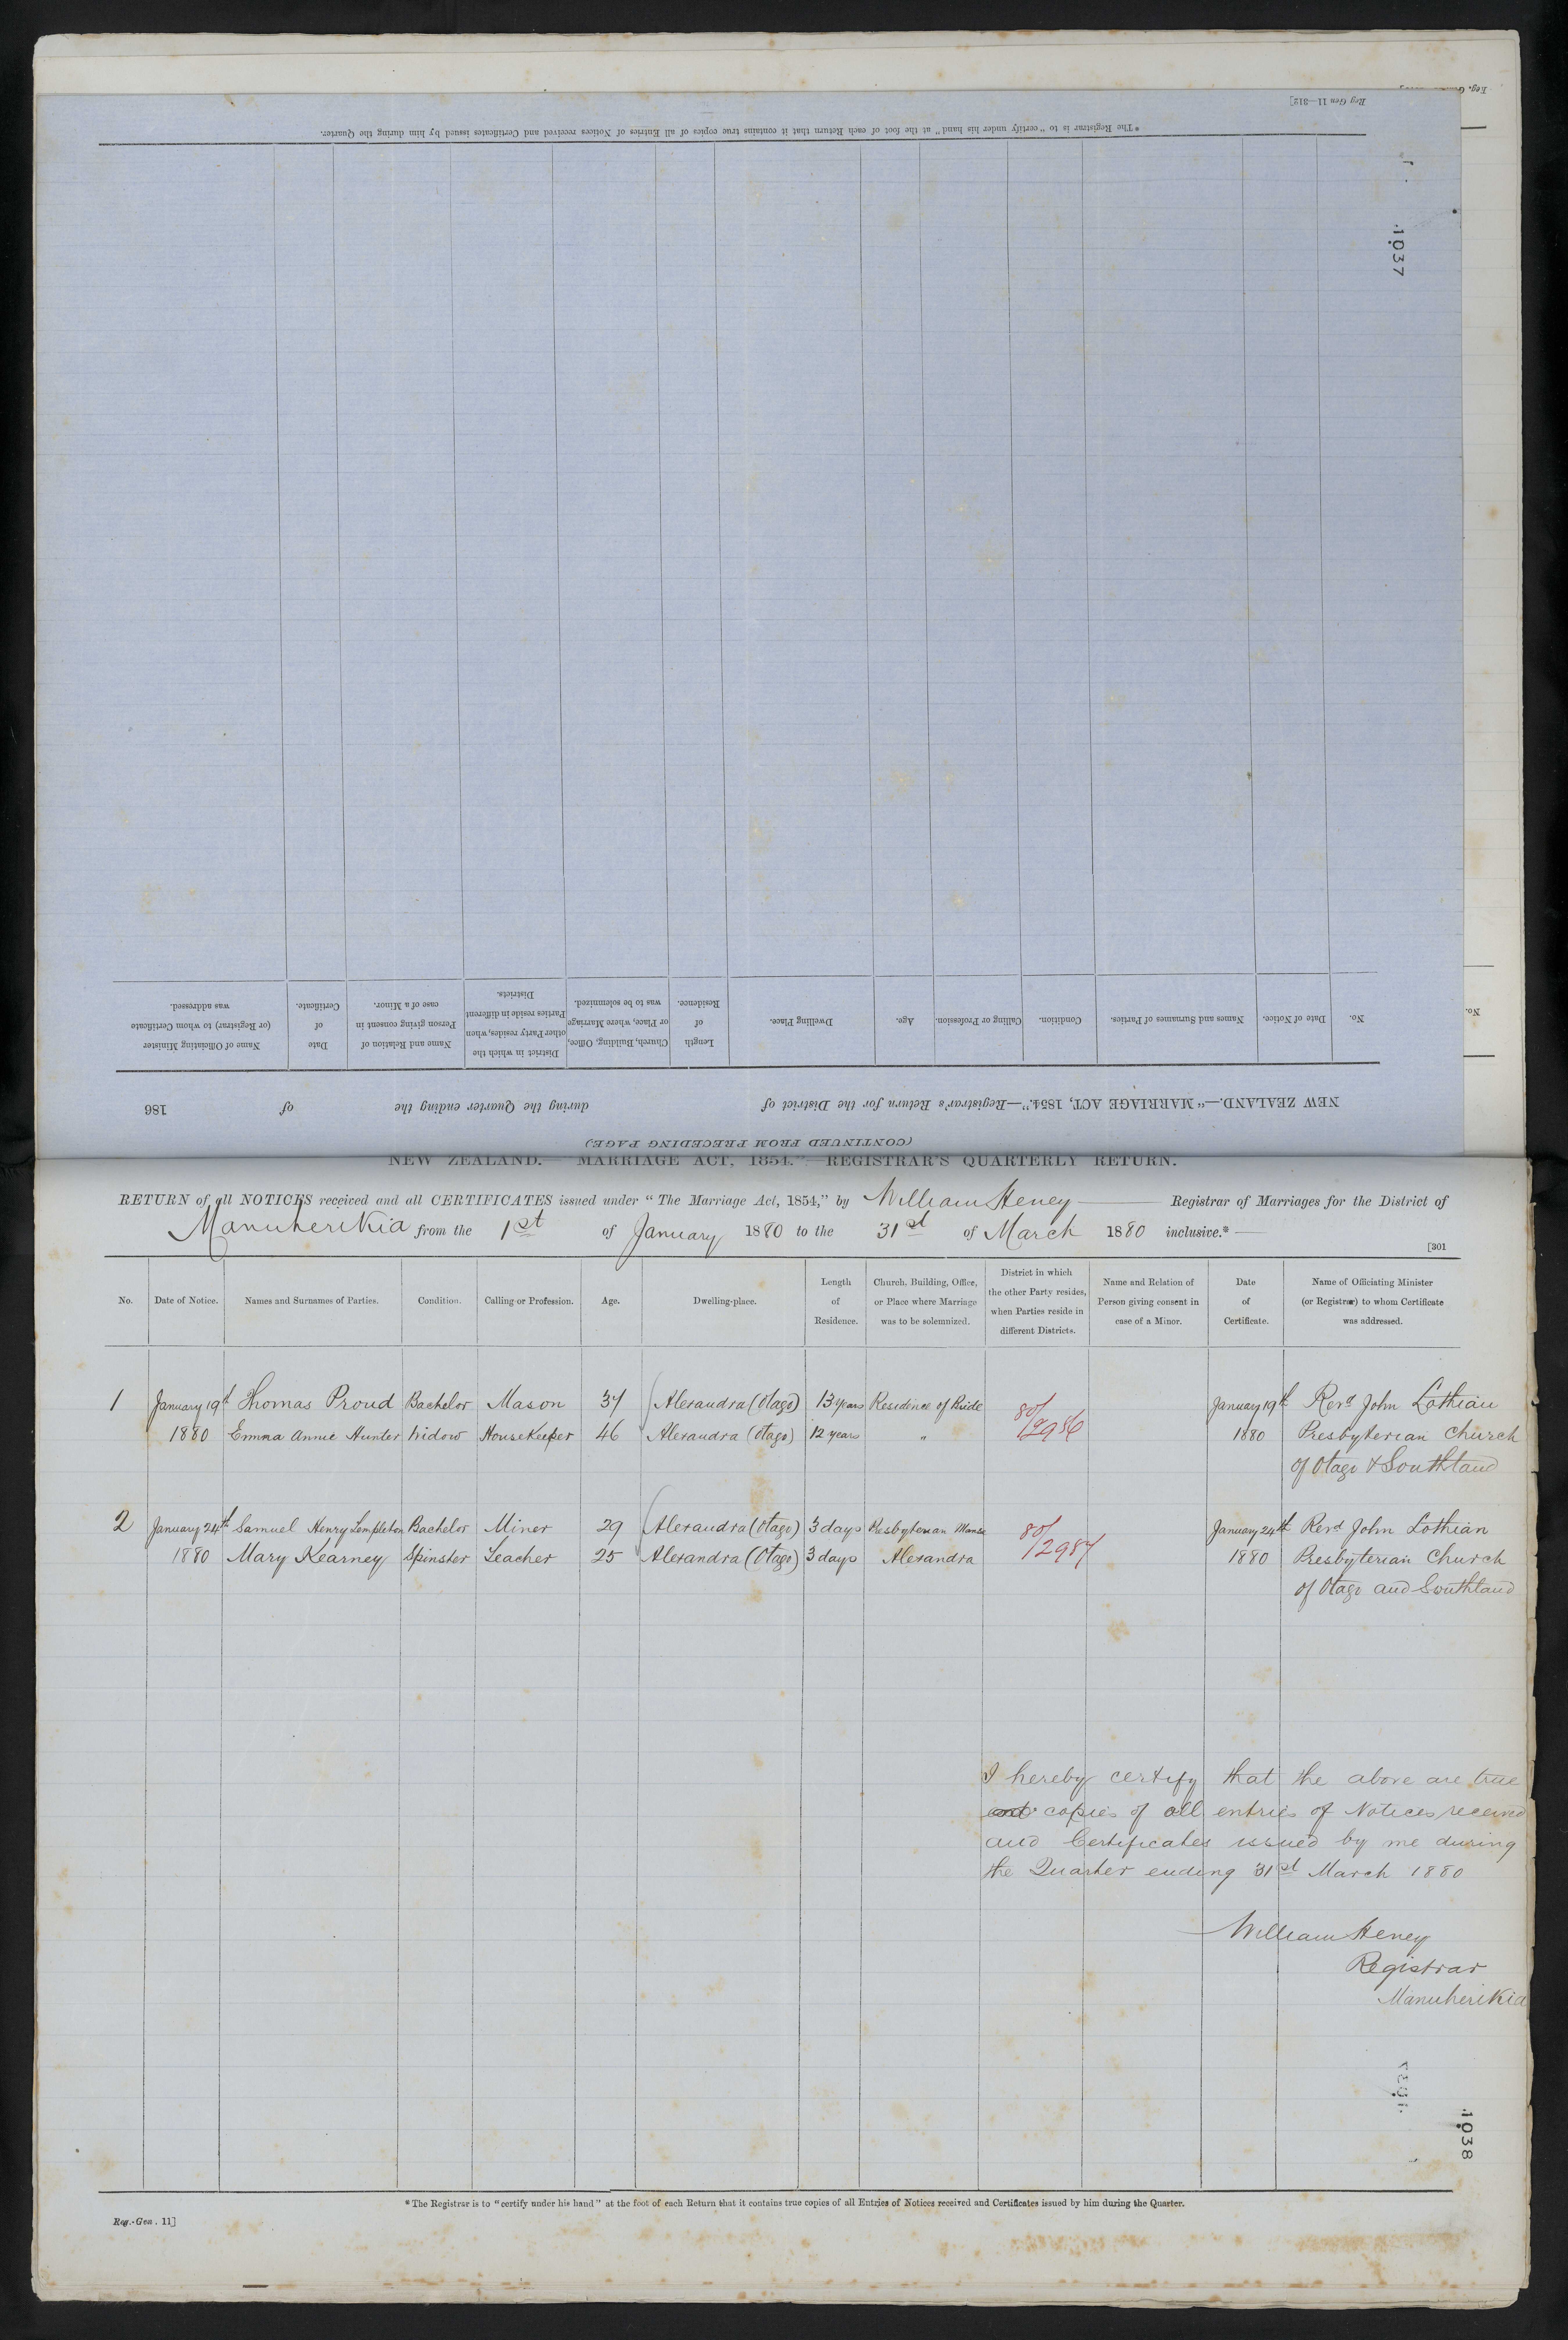 Reg Gen 11—312]
*The Registrar is to "certify under his hand" at the foot of each Return that it contains true copies of all Entries of Notices received and Certificates issued by him during the Quarter.
1037
No.
Date of Notice.
Names and Surnames of Parties.
Condition.
Calling or Profession.
Age.
Dwelling Place.
Length of Residence.
Church, Building, Office, or Place, where Marriage was to be solemnized.
District in which the other Party resides, when Parties reside in different Districts.
Name and Relation of Person giving consent in case of a Minor.
Date of Certificate.
Name of Officiating Minister (or Registrar) to whom Certificate was addressed.
No.
NEW ZEALAND.—"MARRIAGE ACT, 1854."—Registrar's Return for the District of during the Quarter ending the of 186
(CONTINUED FROM PRECEDING PAGE)
NEW ZEALAND.—"MARRIAGE ACT, 1854."—REGISTRAR'S QUARTERLY RETURN.
RETURN of all NOTICES received and all CERTIFICATES issued under "The Marriage Act, 1854," by William Heney Registrar of Marriages for the District of
Manuherikia from the 1st of January 1880 to the 31st of March 1880 inclusive.*
[301
No.
Date of Notice.
Names and Surnames of Parties.
Condition.
Calling or Profession.
Age.
Dwelling-place.
Length of Residence.
Church, Building, Office, or Place where Marriage was to be solemnized.
District in which the other Party resides, when Parties reside in different Districts.
Name and Relation of Person giving consent in case of a Minor.
Date of Certificate.
Name of Officiating Minister (or Registrar) to whom Certificate was addressed.
1 January 19th Thomas Proud Bachelor Mason 37 Alexandra (Otago) 13 years Residence of Bride 80/ January 19th Revd John Lothian
1880 Emma Annie Hunter Widow HouseKeeper 46 Alexandra (Otago) 12 years " /2986 1880 Presbyterian Church
of Otago & Southland
2 January 24th Samuel Henry Templeton Bachelor Miner 29 Alexandra (Otago) 3 days Presbyterian Manse 80/ January 24th Revd John Lothian
1880 Mary Kearney Spinster Teacher 25 Alexandra (Otago) 3 days Alexandra /2987 1880 Presbyterian Church
of Otago and Southland
I hereby certify that the above are true
copies of all entries of Notices received
and Certificates issued by me during
the Quarter ending 31st March 1880
William Heney
Registrar
Manuherikia
1038
*The Registrar is to "certify under his hand" at the foot of each Return that it contains true copies of all Entries of Notices received and Certificates issued by him during the Quarter.
Reg.-Gen. 11]